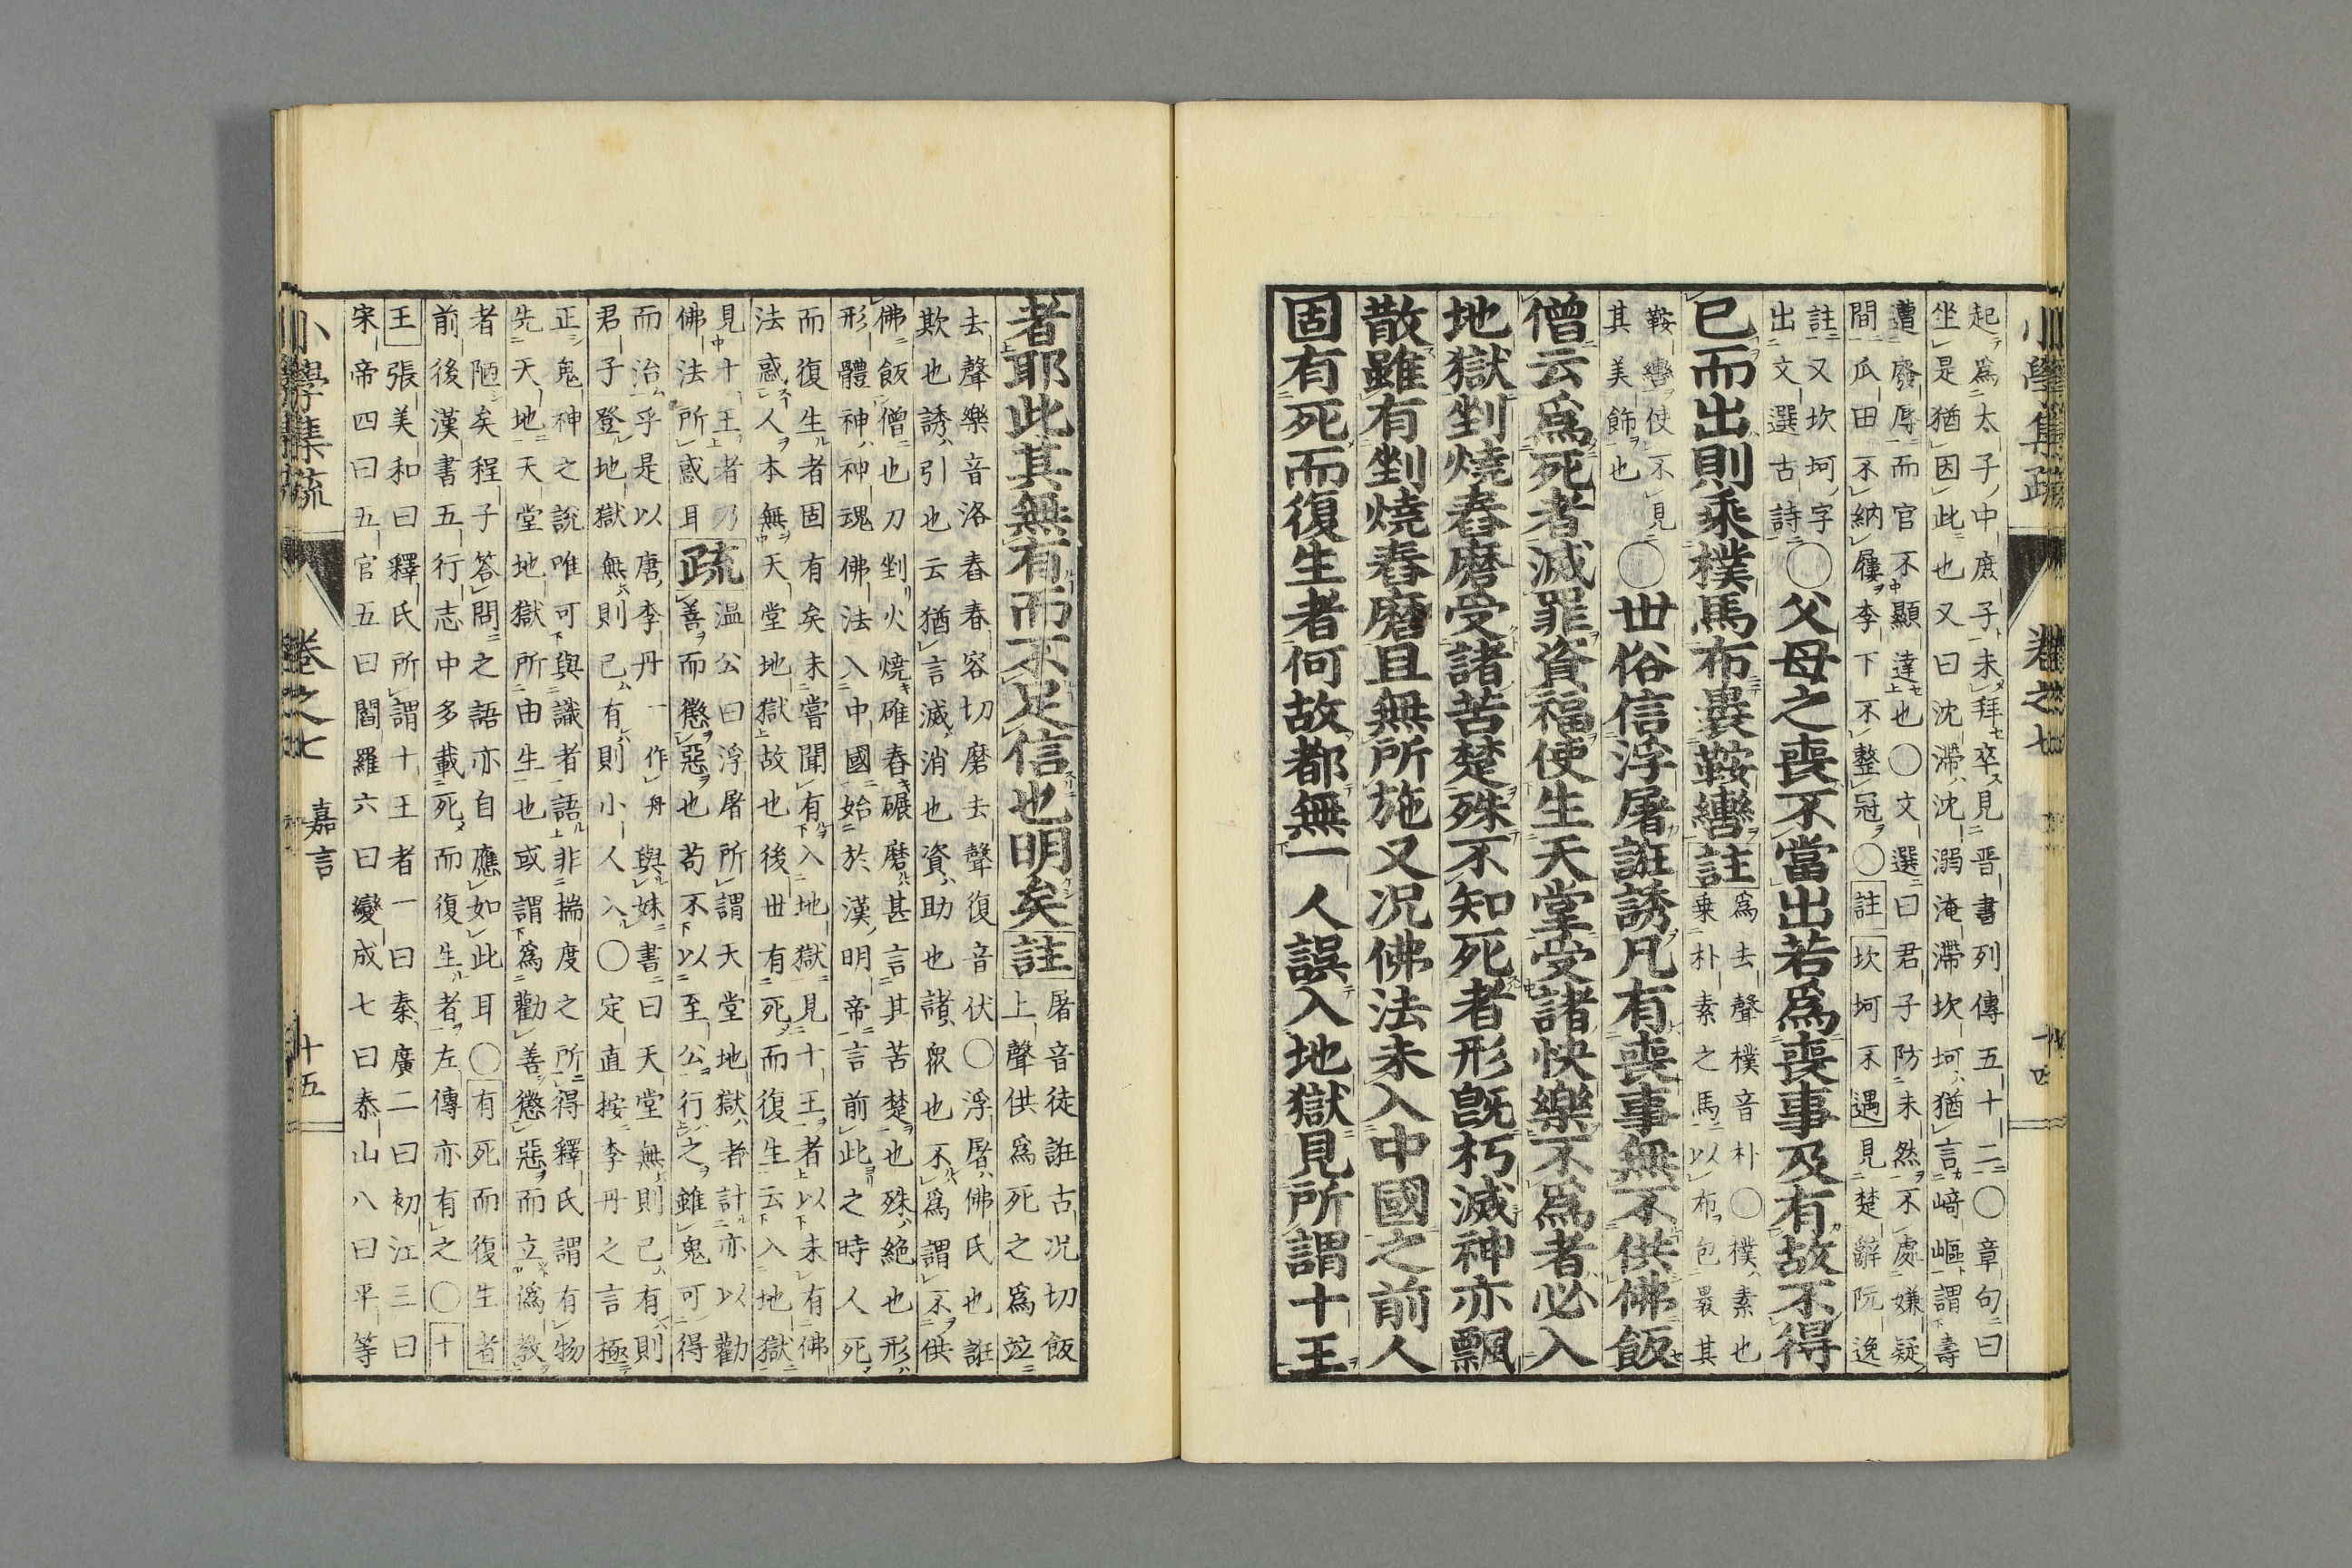 小學集疏 卷之七
起爲太子中庶子未拜卒見晋書列傳五十二○章句曰
坐是猶因此也又曰沈滯沈溺淹滯坎坷猶言﨑嶇謂壽
遭廢辱而官不顯達也○文選曰君子防未然不處嫌疑
間瓜田不納履李下不整冠○註坎坷不遇見楚辭阮逸
註又坎坷字
出文選古詩○父母之喪不當出若爲喪事及有故不得
已而出則乘樸馬布裹鞍轡註爲去聲樸音朴○樸素也
乗朴素之馬以布包裹其
鞍轡使不見
其美飾也○世俗信浮屠誑誘凡有喪事無不供佛飯
僧云爲死者滅罪資福使生天堂受諸快樂不爲者必入
地獄剉燒舂磨受諸苦楚殊不知死者形旣朽滅神亦飄
散雖有剉燒舂磨且無所施又况佛法未入中國之前人
固有死而復生者何故都無一人誤入地獄見所謂十王
者耶此其無有而不足信也明矣註屠音徒誑古况切飯
上聲供爲死之爲竝
去聲樂音洛舂春容切磨去聲復音伏○浮屠佛氏也誑
欺也誘引也云猶言滅消也資助也諸衆也不爲謂不供
佛飯僧也刀剉火燒碓舂碾磨甚言其苦楚也殊絶也形
形體神神魂佛法入中國始於漢明帝言前此之時人死
而復生者固有矣未嘗聞有入地獄見十王者以未有佛
法惑人本無天堂地獄故也後世有死而復生云入地獄
見十王者乃
佛法所惑耳疏溫公曰浮屠所謂天堂地獄者計亦以勸
善而懲惡也苟不以至公行之雖鬼可得
而治乎是以唐李丹一作舟與妹書曰天堂無則已有則
君子登地獄無則已有則小人入○定直按李丹之言極
正鬼神之說唯可與識者語非揣度之所得釋氏謂有物
先天地天堂地獄所由生也或謂爲勸善懲惡而立僞教
者陋矣程子答問之語亦自應如此耳○有死而復生者
前後漢書五行志中多載死而復生者左傳亦有之○十
王張美和曰釋氏所謂十王者一曰秦廣二曰初江三曰
宋帝四曰五官五曰閻羅六曰變成七曰泰山八曰平等
小學集疏 卷之七 嘉言 十五